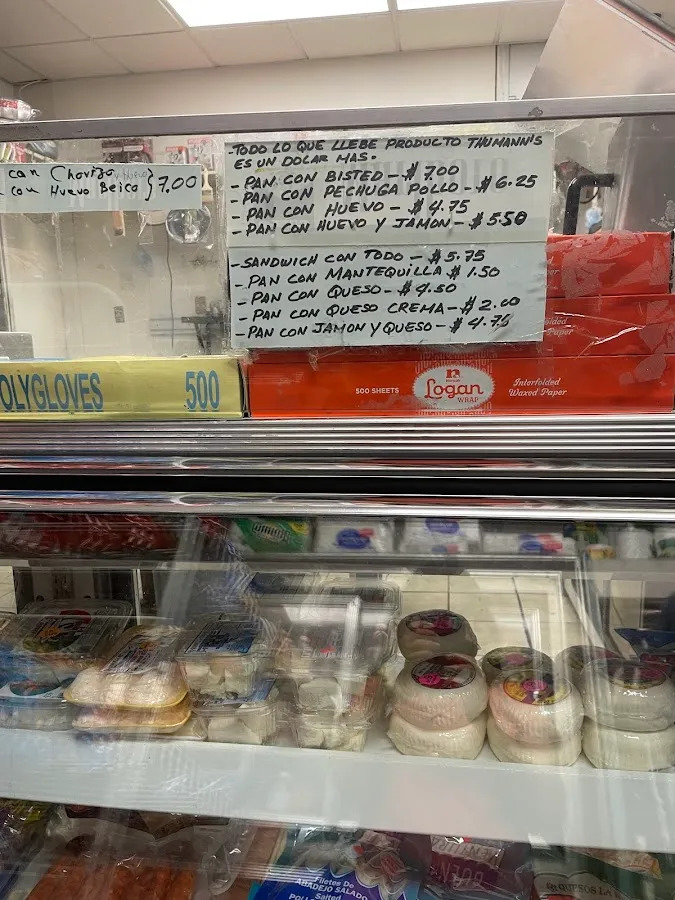 -TODO LO QUE LLEBE PRODUCTO THUMANN'S
ES UN DOLAR MAS.
-PAN CON BISTED-$7.00
-PAN CON PECHUGA POLLO-$6.25
-PAN CON HUEVO-$4.75
-PAN CON HUEVO Y JAMON-$5.50
-SANDWICH CON TODO-$5.75
-PAN CON MANTEQUILLA $1.50
-PAN CON QUESO-$4.50
-PAN CON QUESO CREMA-$2.00
-PAN CON JAMON Y QUESO-$4.75
con Chorizo
-con Huevo Beico}7.00
OLYGLOVES 500
500 SHEETS
Logan
WRAP
Interfolded
Waxed Paper
Filetes De
ABADEJO SALADO
Salted